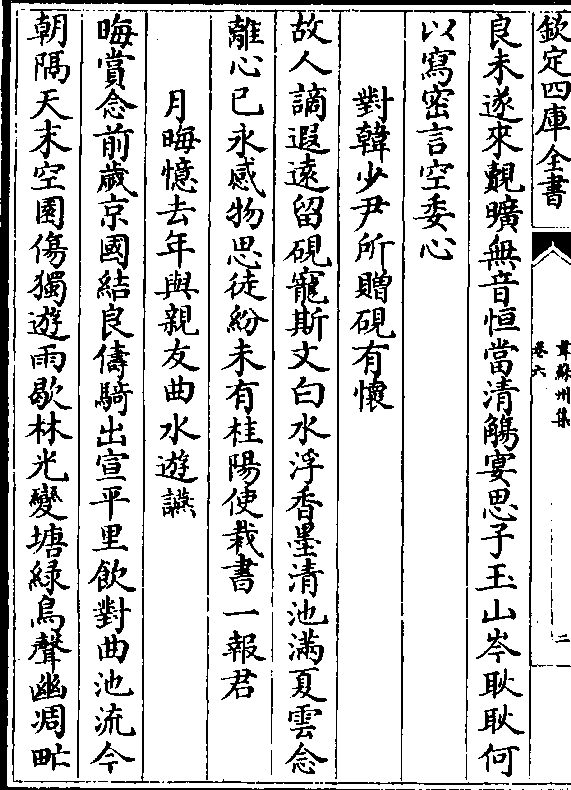 欽定四庫全書
韋蘇州集
卷六
二
良未遂來覿曠無音恒當清觴宴思子玉山岑耿耿何
以寫密言空委心
對韓少尹所贈硯有懷
故人謫遐遠留硯寵斯文白水浮香墨清池滿夏雲念
離心已永感物思徒紛未有桂陽使裁書一報君
月晦憶去年與親友曲水遊讌
晦賞念前歲京國結良儔騎出宣平里飲對曲池流今
朝隔天末空園傷獨遊雨歇林光變塘綠鳥聲幽凋甿